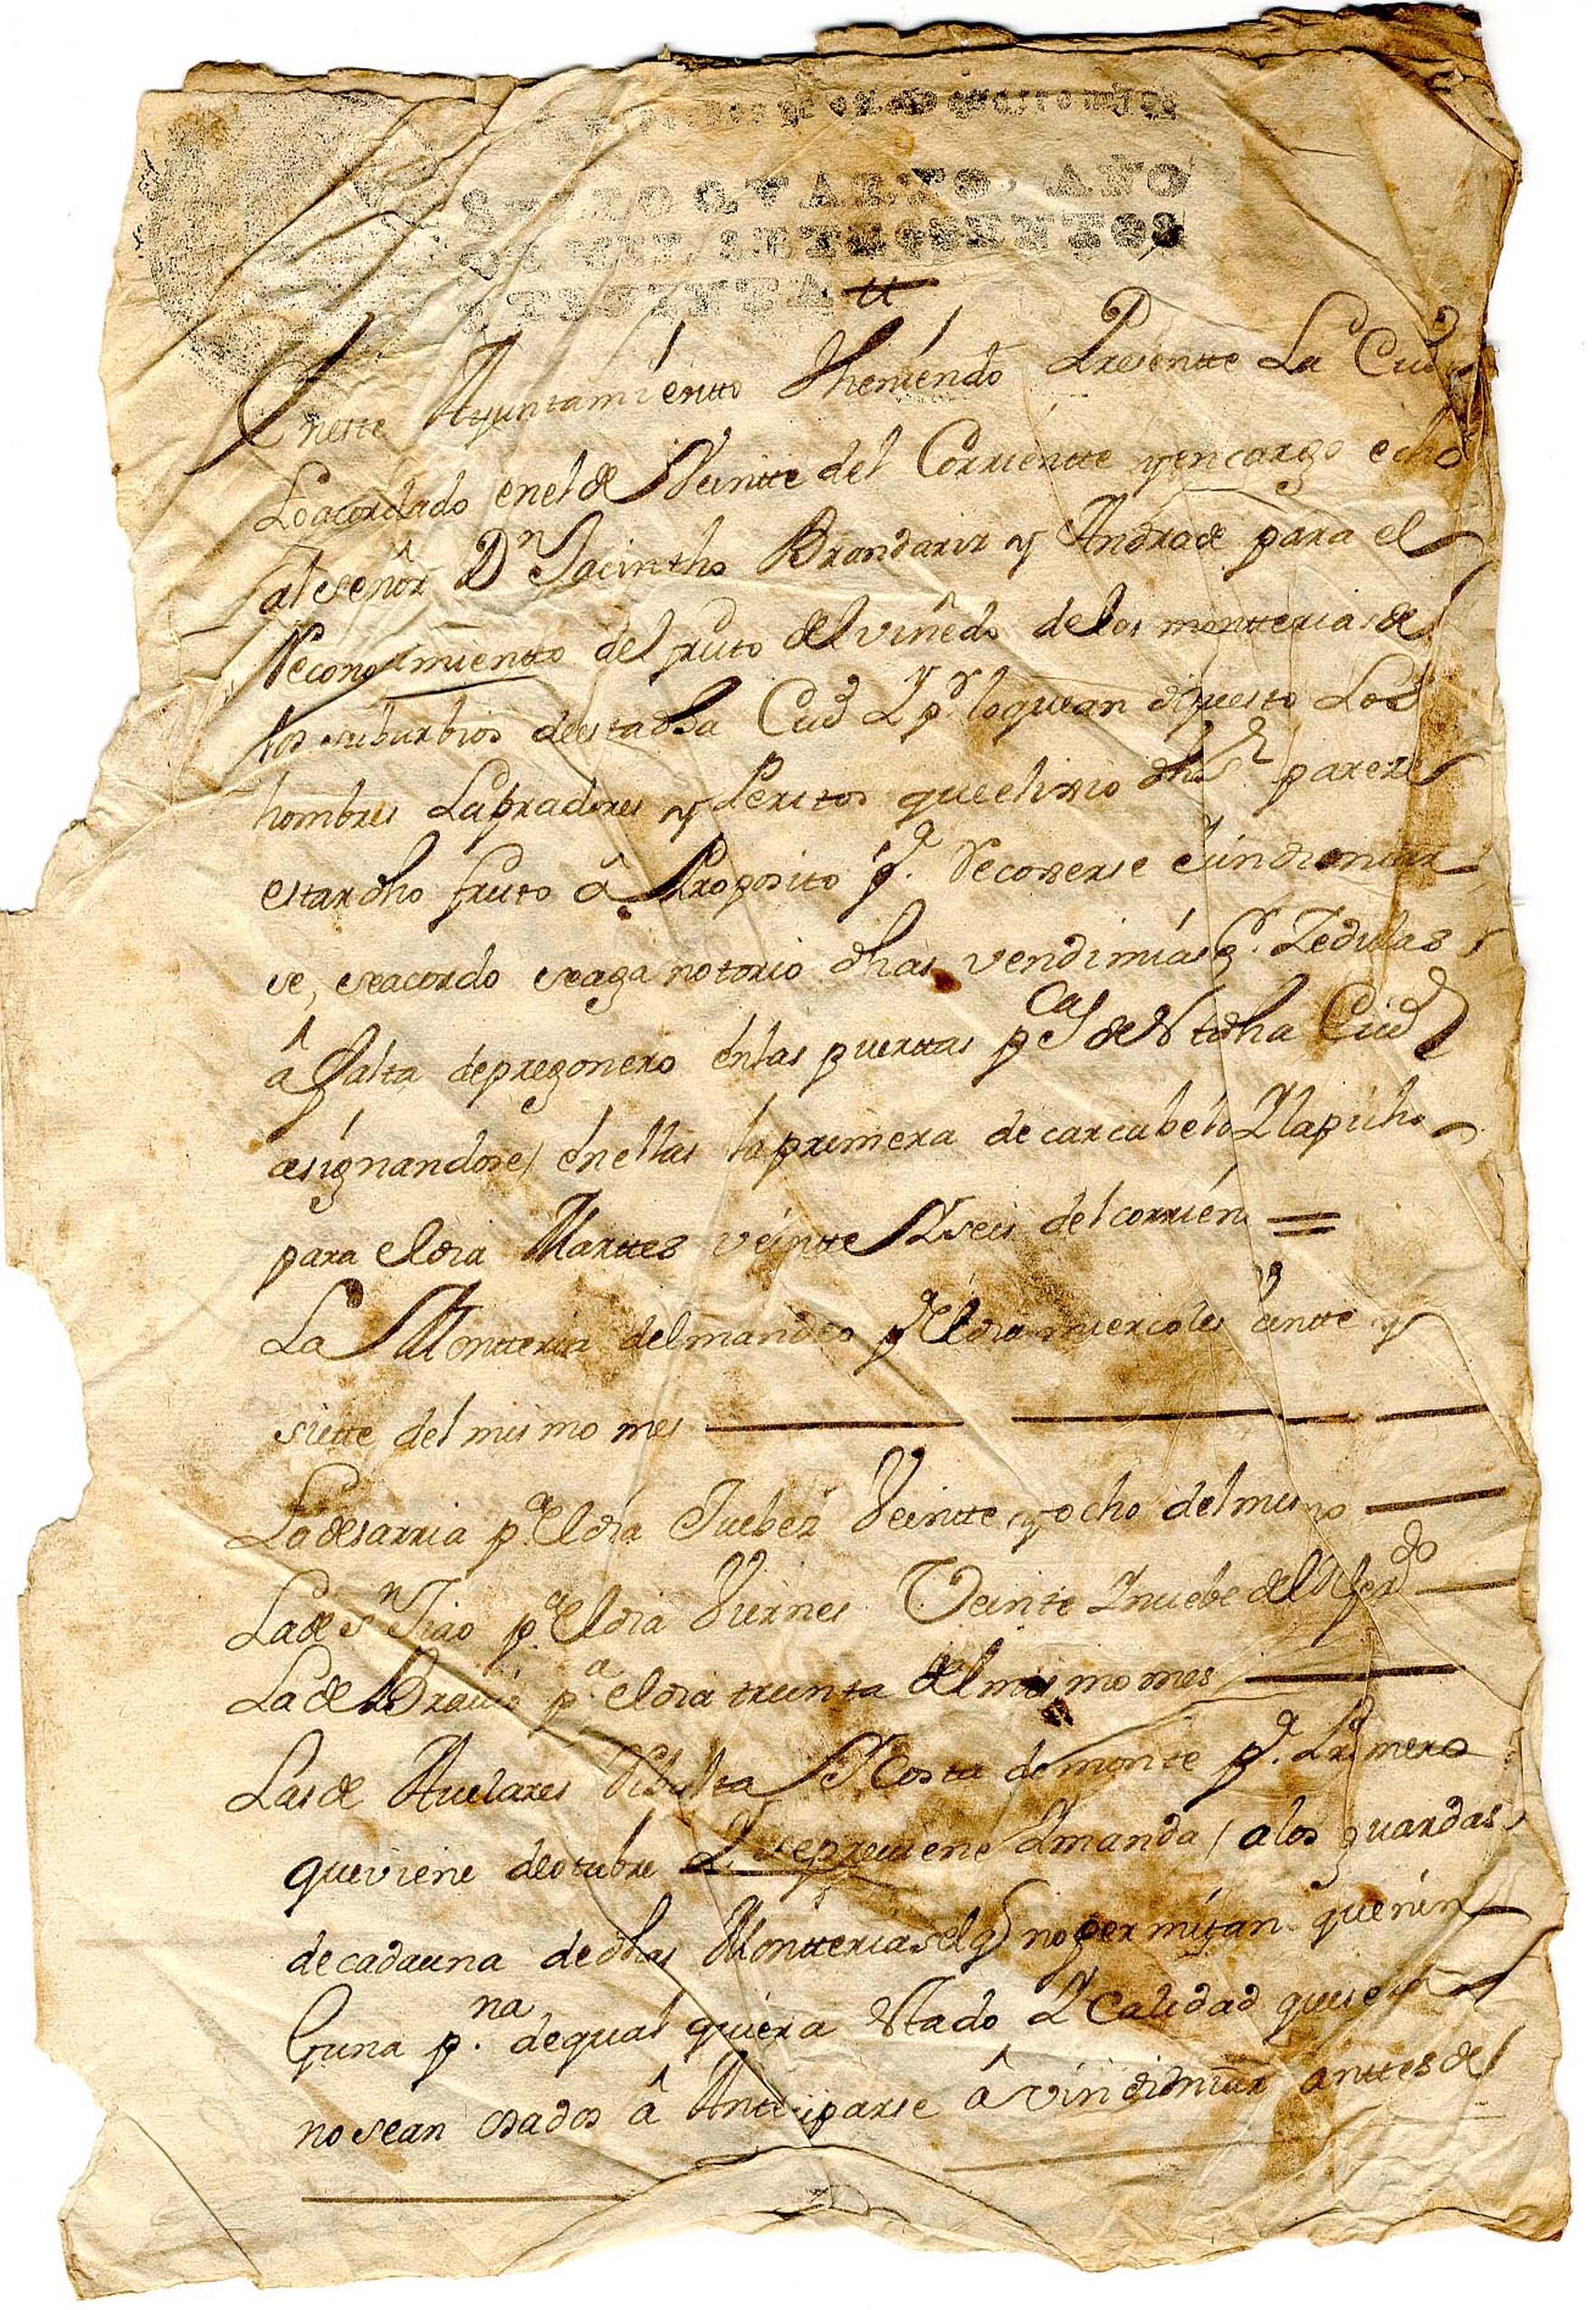 SELLO QVARTO, AÑO
DE MIL SETECIENTOS
Eneste Ayuntamientto theniendo Presentte La Ciud
Loacordado enel de Veintte del Corrientte y encargo echo
al señor Dn Jacintho Brandariz y Andrade para el
Reconosimientto del fruto del viñedo de los montterias de
los suburbios de esta dha Ciud Y pr loquean dipuesto Los
hombres Labradores y Peritos que elixio dho Sr pareze
estar dho fruto â Proposito pa. Recoxerse e vindimiar
se, seacordo seaga notorio dhas vendimias pr. Zedulas
â falta depregonero enlas puerttas pcals de Estadha Ciud
asignandose en ellas la primera de carcabelo Y lapicho
para eldia Marttes veintte Y seis del corrien =
La Montteria del mandeo pa Eldia miercoles Veintte y
siette del mismo mes
La desarria pa Eldia Juebez Veintte y ocho del mismo
La de Sn Tiao pa Eldia Viernes Veinte Y nuebe del Referdo
La de Brauio pa. el dia treinta del mismo mes
Las de Auelares Costa de monte pa. Primero
que viene de otubre Y se preuiene Y manda a los guardas
de cada una de dhas Montterias el q no permitan que nin
Guna pna. de qual quiera Estado Y Calidad que sea
no sean osados â Antiziparse â vindimiar anttes de